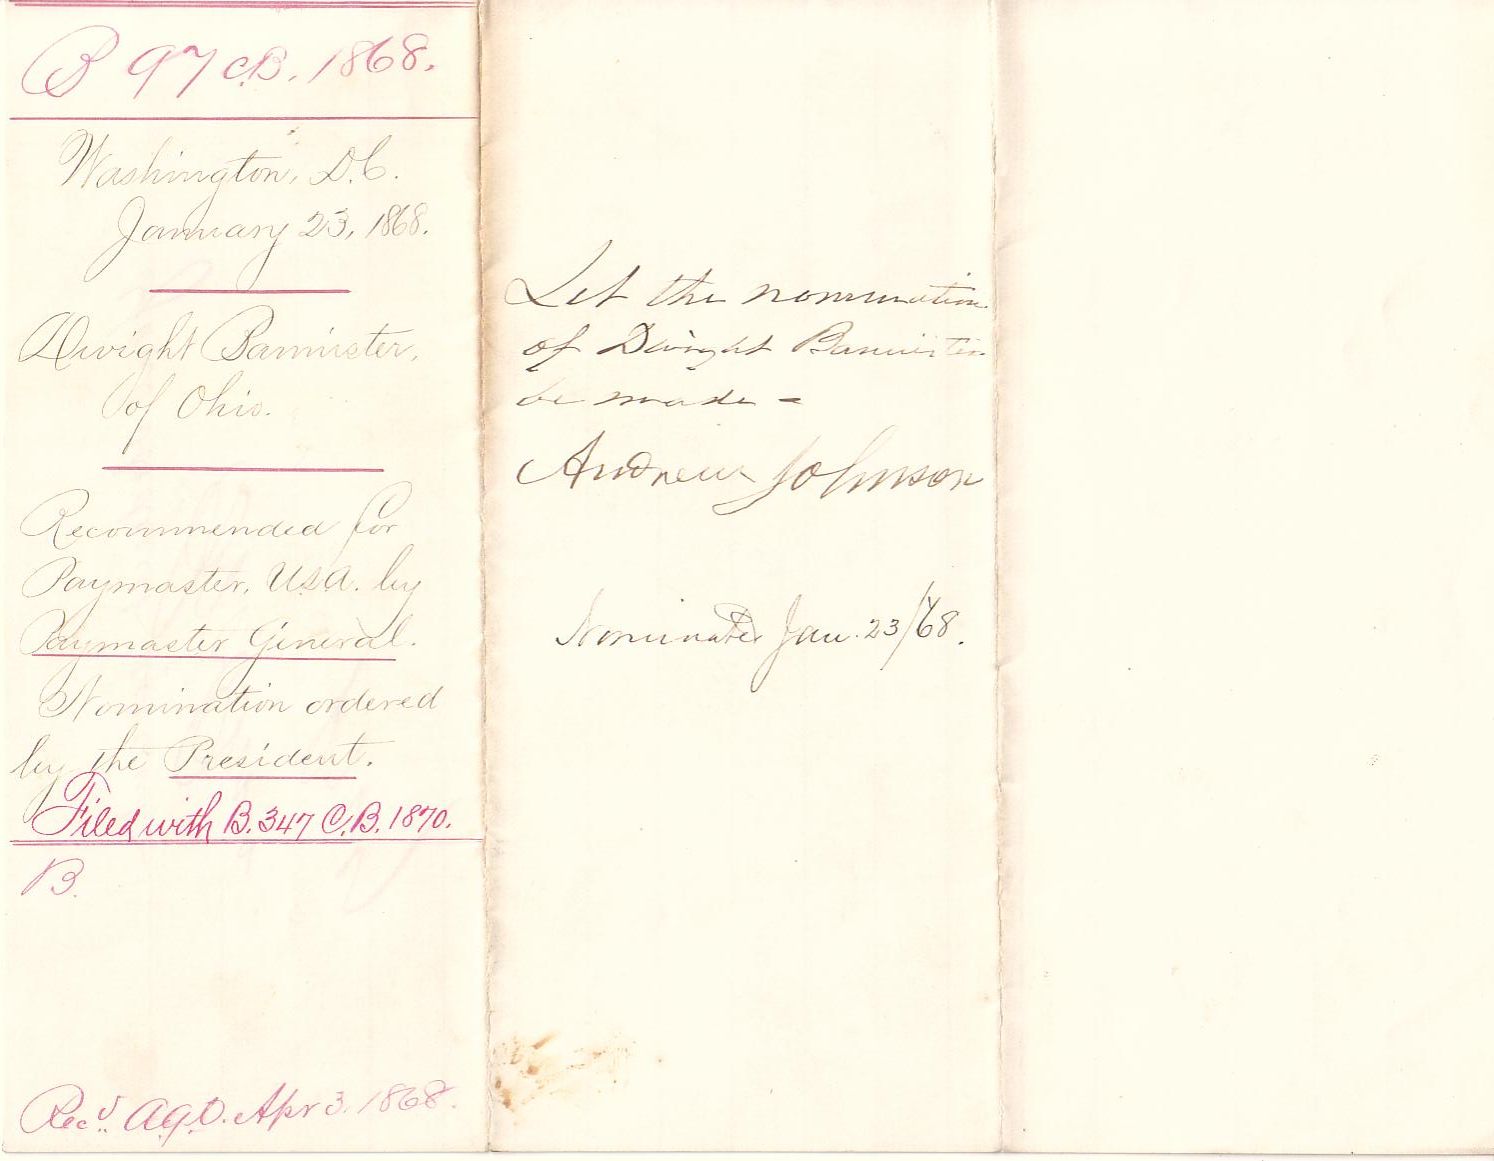 B 97 C.B. 1868.
Washington, D.C.
January 23, 1868.
Dwight Bannister,
of Ohio.
Recommended for
Paymaster, U.S.A. by
Paymaster General.
Nomination ordered
by the President.
Filed with B. 347 C.B. 1870.
B.
Rec'd A.G.O. Apr 3. 1868.
Let the nomination
of Dwight Bannister
be made –
Andrew Johnson
Nominated Jan. 23/68.